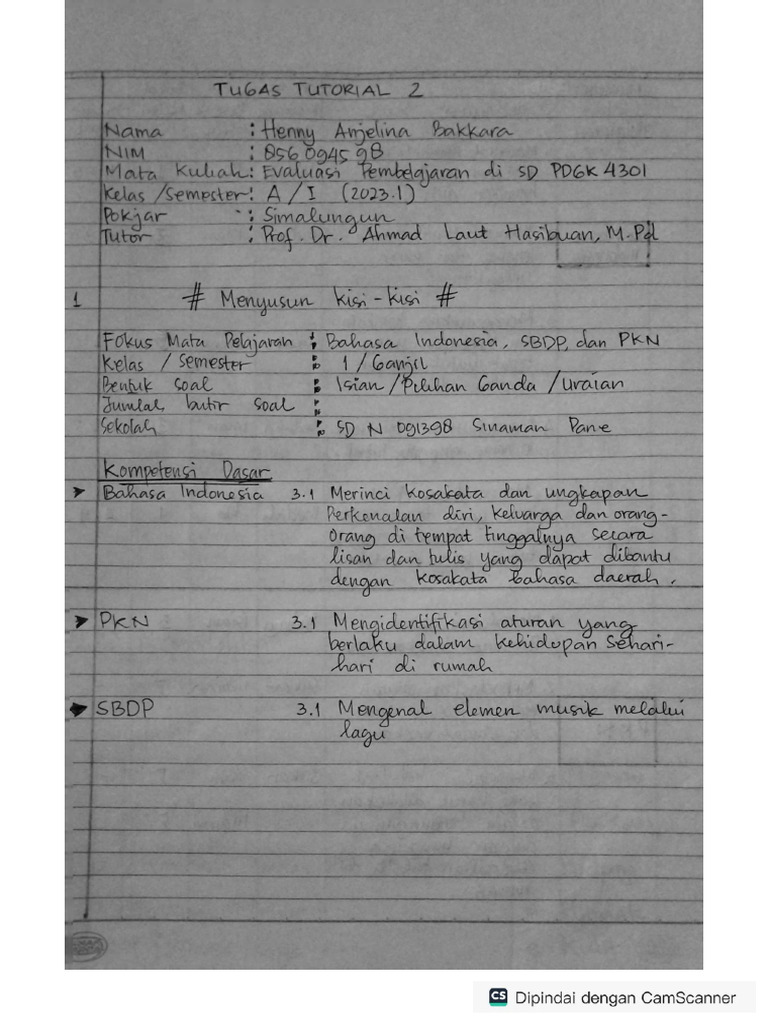 TUGAS TUTORIAL 2
Nama : Henny Anjelina Bakkara
NIM : 856094598
Mata Kuliah : Evaluasi Pembelajaran di SD PDGK 4301
Kelas /Semester : A / I (2023.1)
Pokjar : Simalungun
Tutor : Prof. Dr. Ahmad Laut Hasibuan, M.Pd
1 # Menyusun kisi-kisi #
Fokus Mata Pelajaran : Bahasa Indonesia, SBDP, dan PKN
Kelas / Semester : 1 / Ganjil
Bentuk soal : Isian / Pilihan Ganda / Uraian
Jumlah butir soal :
Sekolah : SD N 091398 Sinaman Pane
Kompetensi Dasar
➤ Bahasa Indonesia 3.1 Merinci kosakata dan ungkapan
perkenalan diri, keluarga dan orang-
orang di tempat tinggalnya secara
lisan dan tulis yang dapat dibantu
dengan kosakata bahasa daerah.
➤ PKN 3.1 Mengidentifikasi aturan yang
berlaku dalam kehidupan sehari-
hari di rumah
➤ SBDP 3.1 Mengenal elemen musik melalui
lagu
CS Dipindai dengan CamScanner